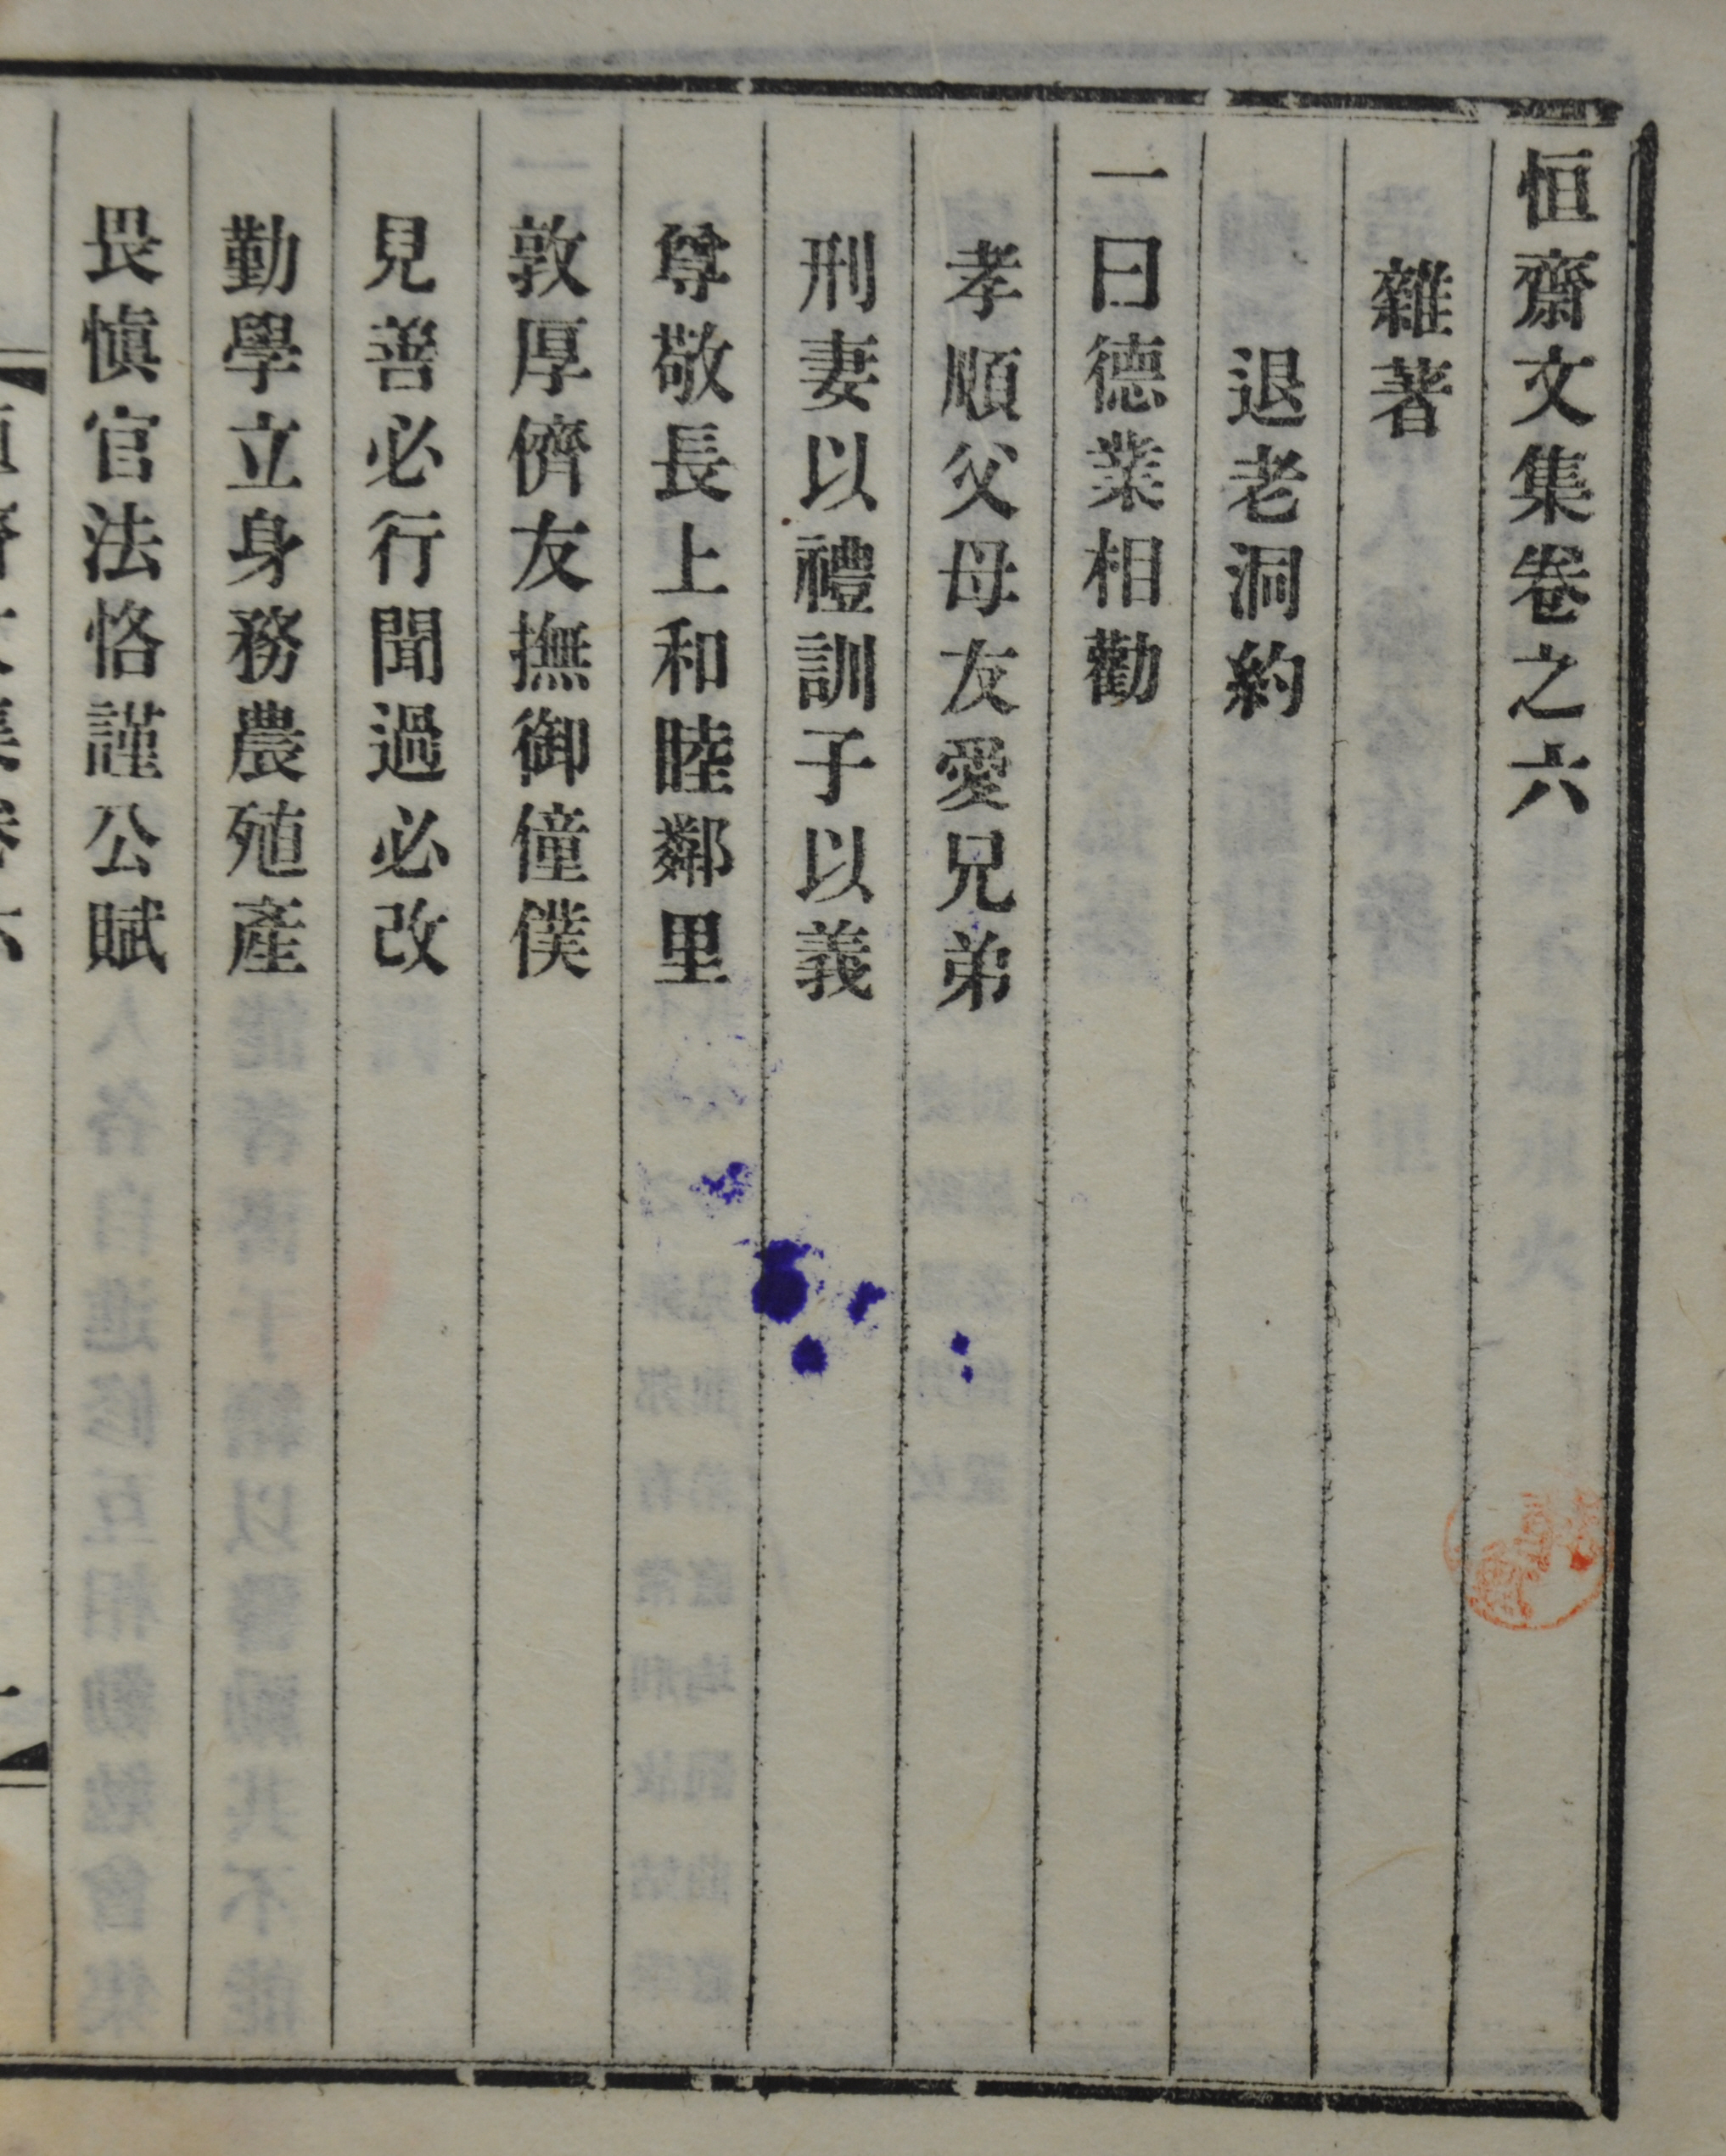 恒齋文集卷之六
雜著
退老洞約
一曰德業相勸
孝順父母友愛兄弟
刑妻以禮訓子以義
尊敬長上和睦鄰里
敦厚儕友撫御僮僕
見善必行聞過必改
勤學立身務農殖產
畏愼官法恪謹公賦